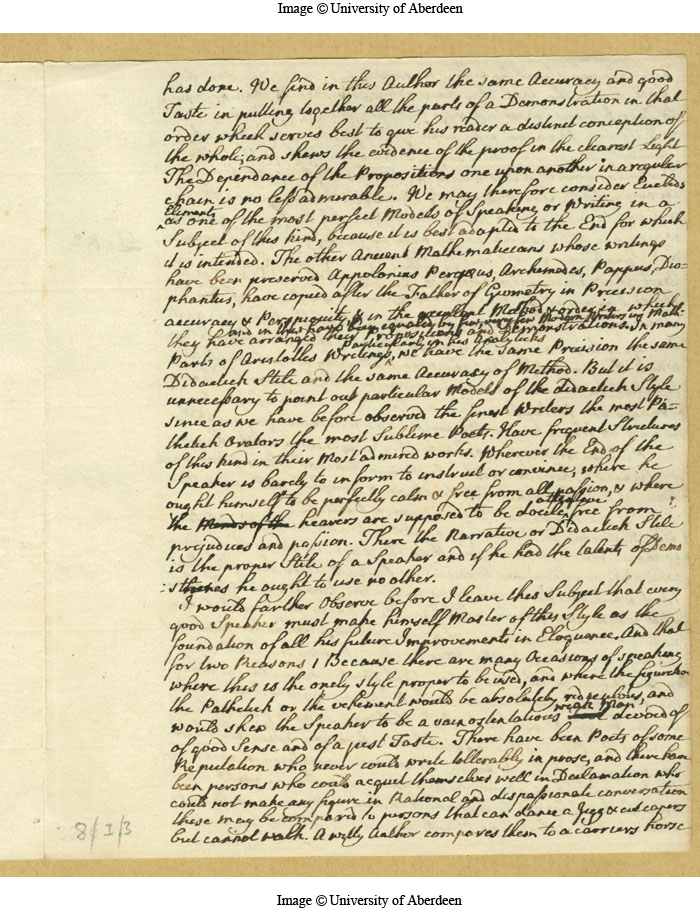 Image © University of Aberdeen
has done. We find in this Author the same Accuracy and good
Taste in putting together all the parts of a Demonstration in that
order which serves best to give his reader a distinct conception of
the whole, and shews the evidence of the proof in the clearest Light
The Dependance of the Propositions one upon another in a regular
chain is no less admirable. We may therefore consider Euclids
Elements
as one of the most perfect Models of Speaking or Writing in a
Subject of this kind, because it is best adapted to the End for which
it is intended. The other Ancient Mathematicians whose writings
have been preserved Appolonius Pergæus, Archemedes, Pappus, Dio-
phantus, have copied after the Father of Geometry in Precision
accuracy & Perspicuity & in the excellent Method & order in which
and in this have been equaled by
they have arranged their Propositions and Demonstrations. In many
Particularly in his Analyticks
Parts of Aristotles Writings, we have the same Precision the same
Didactick Stile and the same Accuracy of Method. But it is
unnecessary to point out particular Models of the didactick Style
since as we have before observed the finest Writers the most Pa-
thetick Orators the most Sublime Poets. Have frequent Strictures
of this kind in their Most admired works. Wherever the End of the
Speaker is barely to inform to instruct or convince, where he
ought himself to be perfectly calm & free from all passion, & where
attentive
the Minds of the hearers are supposed to be docile, free from
prejudices and passion. There the Narrative or Didactick Stile
is the proper Stile of a Speaker and if he had the talents of Demo
:sthenes he ought to use no other.
I would farther Observe before I leave this Subject that every
good Speaker must make himself Master of this Style as the
foundation of all his future Improvements in Eloquence. And that
for two Reasons 1 Because there are many Occasions of speaking
where this is the onely style proper to be used, and where the figurative
the Pathetick or the vehement would be absolutely ridiculous, and
weak Man
would shew the Speaker to be a vain ostentatious devoid of
of good Sense and of a just Taste. There have been Poets of some
Reputation who never could write tollerably in prose, and there have
been persons who could acquit themselves well in Declamation who
could not make any figure in Rational and dispassionate conversation
these may be compar'd to persons that can dance a Jigg & cut capers
but cannot walk. A witty Author compares them to a carriers horse
8/I/3
Image © University of Aberdeen